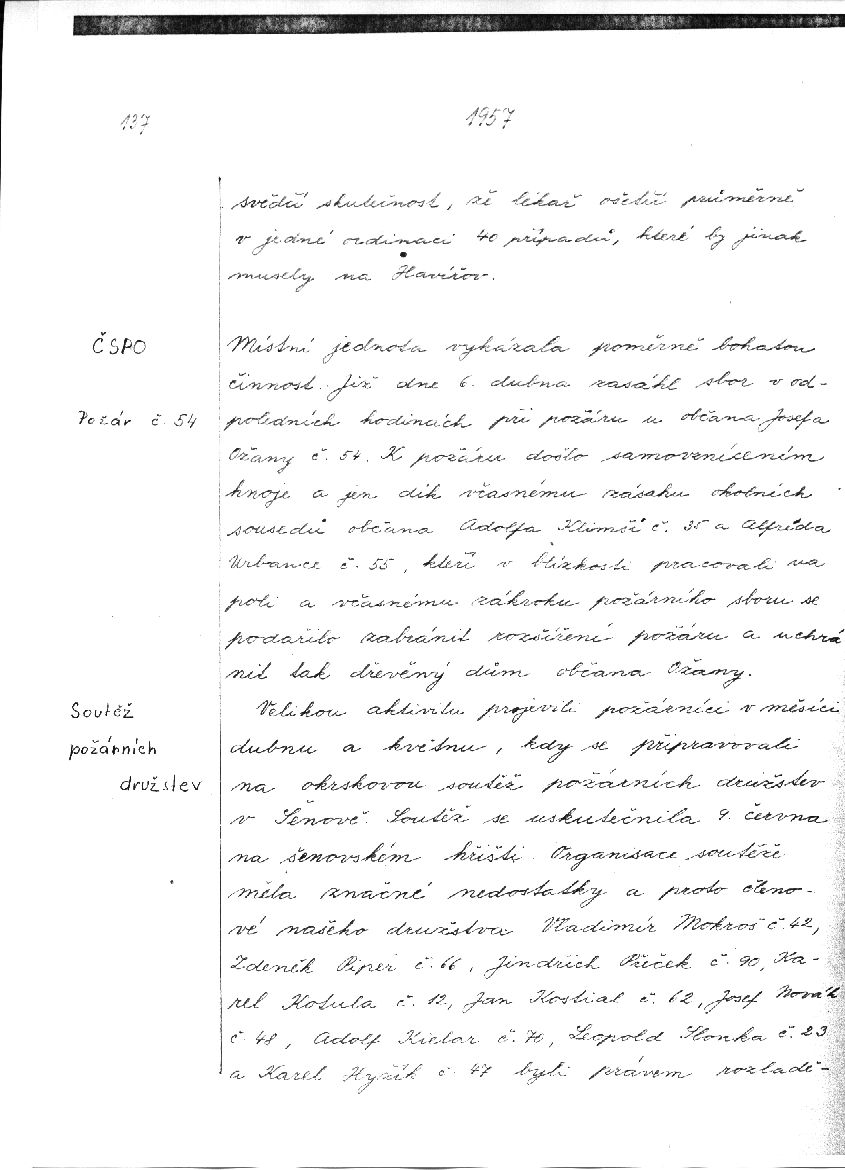 137
1957
svědčí skutečnost, že lékař ošetří průměrně
v jedné ordinaci 40 případů, které by jinak
musely na Havířov.
ČSPO
Místní jednota vykázala poměrně bohatou
činnost. Již dne 6. dubna zasáhl sbor v od-
Požár č. 54
poledních hodinách při požáru u občana Josefa
Ožany č. 54. K požáru došlo samovznícením
hnoje a jen dík včasnému zásahu okolních
sousedů občana Adolfa Klimši č. 35 a Alfréda
Urbance č. 55, kteří v blízkosti pracovali na
poli a včasnému zákroku požárního sboru se
podařilo zabránit rozšíření požáru a uchrá
nit tak dřevěný dům občana Ožany.
Soutěž
požárních
družstev
Velikou aktivitu projevili požárníci v měsíci
dubnu a květnu, kdy se připravovali
na okrskovou soutěž požárních družstev
v Šenově. Soutěž se uskutečnila 9. června
na šenovském hřišti. Organisace soutěže
měla značné nedostatky a proto členo-
vé našeho družstva Vladimír Mokroš č. 42,
Zdeněk Piper č. 66, Jindřich Příček č. 90, Ka-
rel Kotula č. 12, Jan Kostial č. 62, Josef Novák
č. 48, Adolf Kielar č. 70, Leopold Slonka č. 23
a Karel Hyžík č. 47 byli právem rozladě-